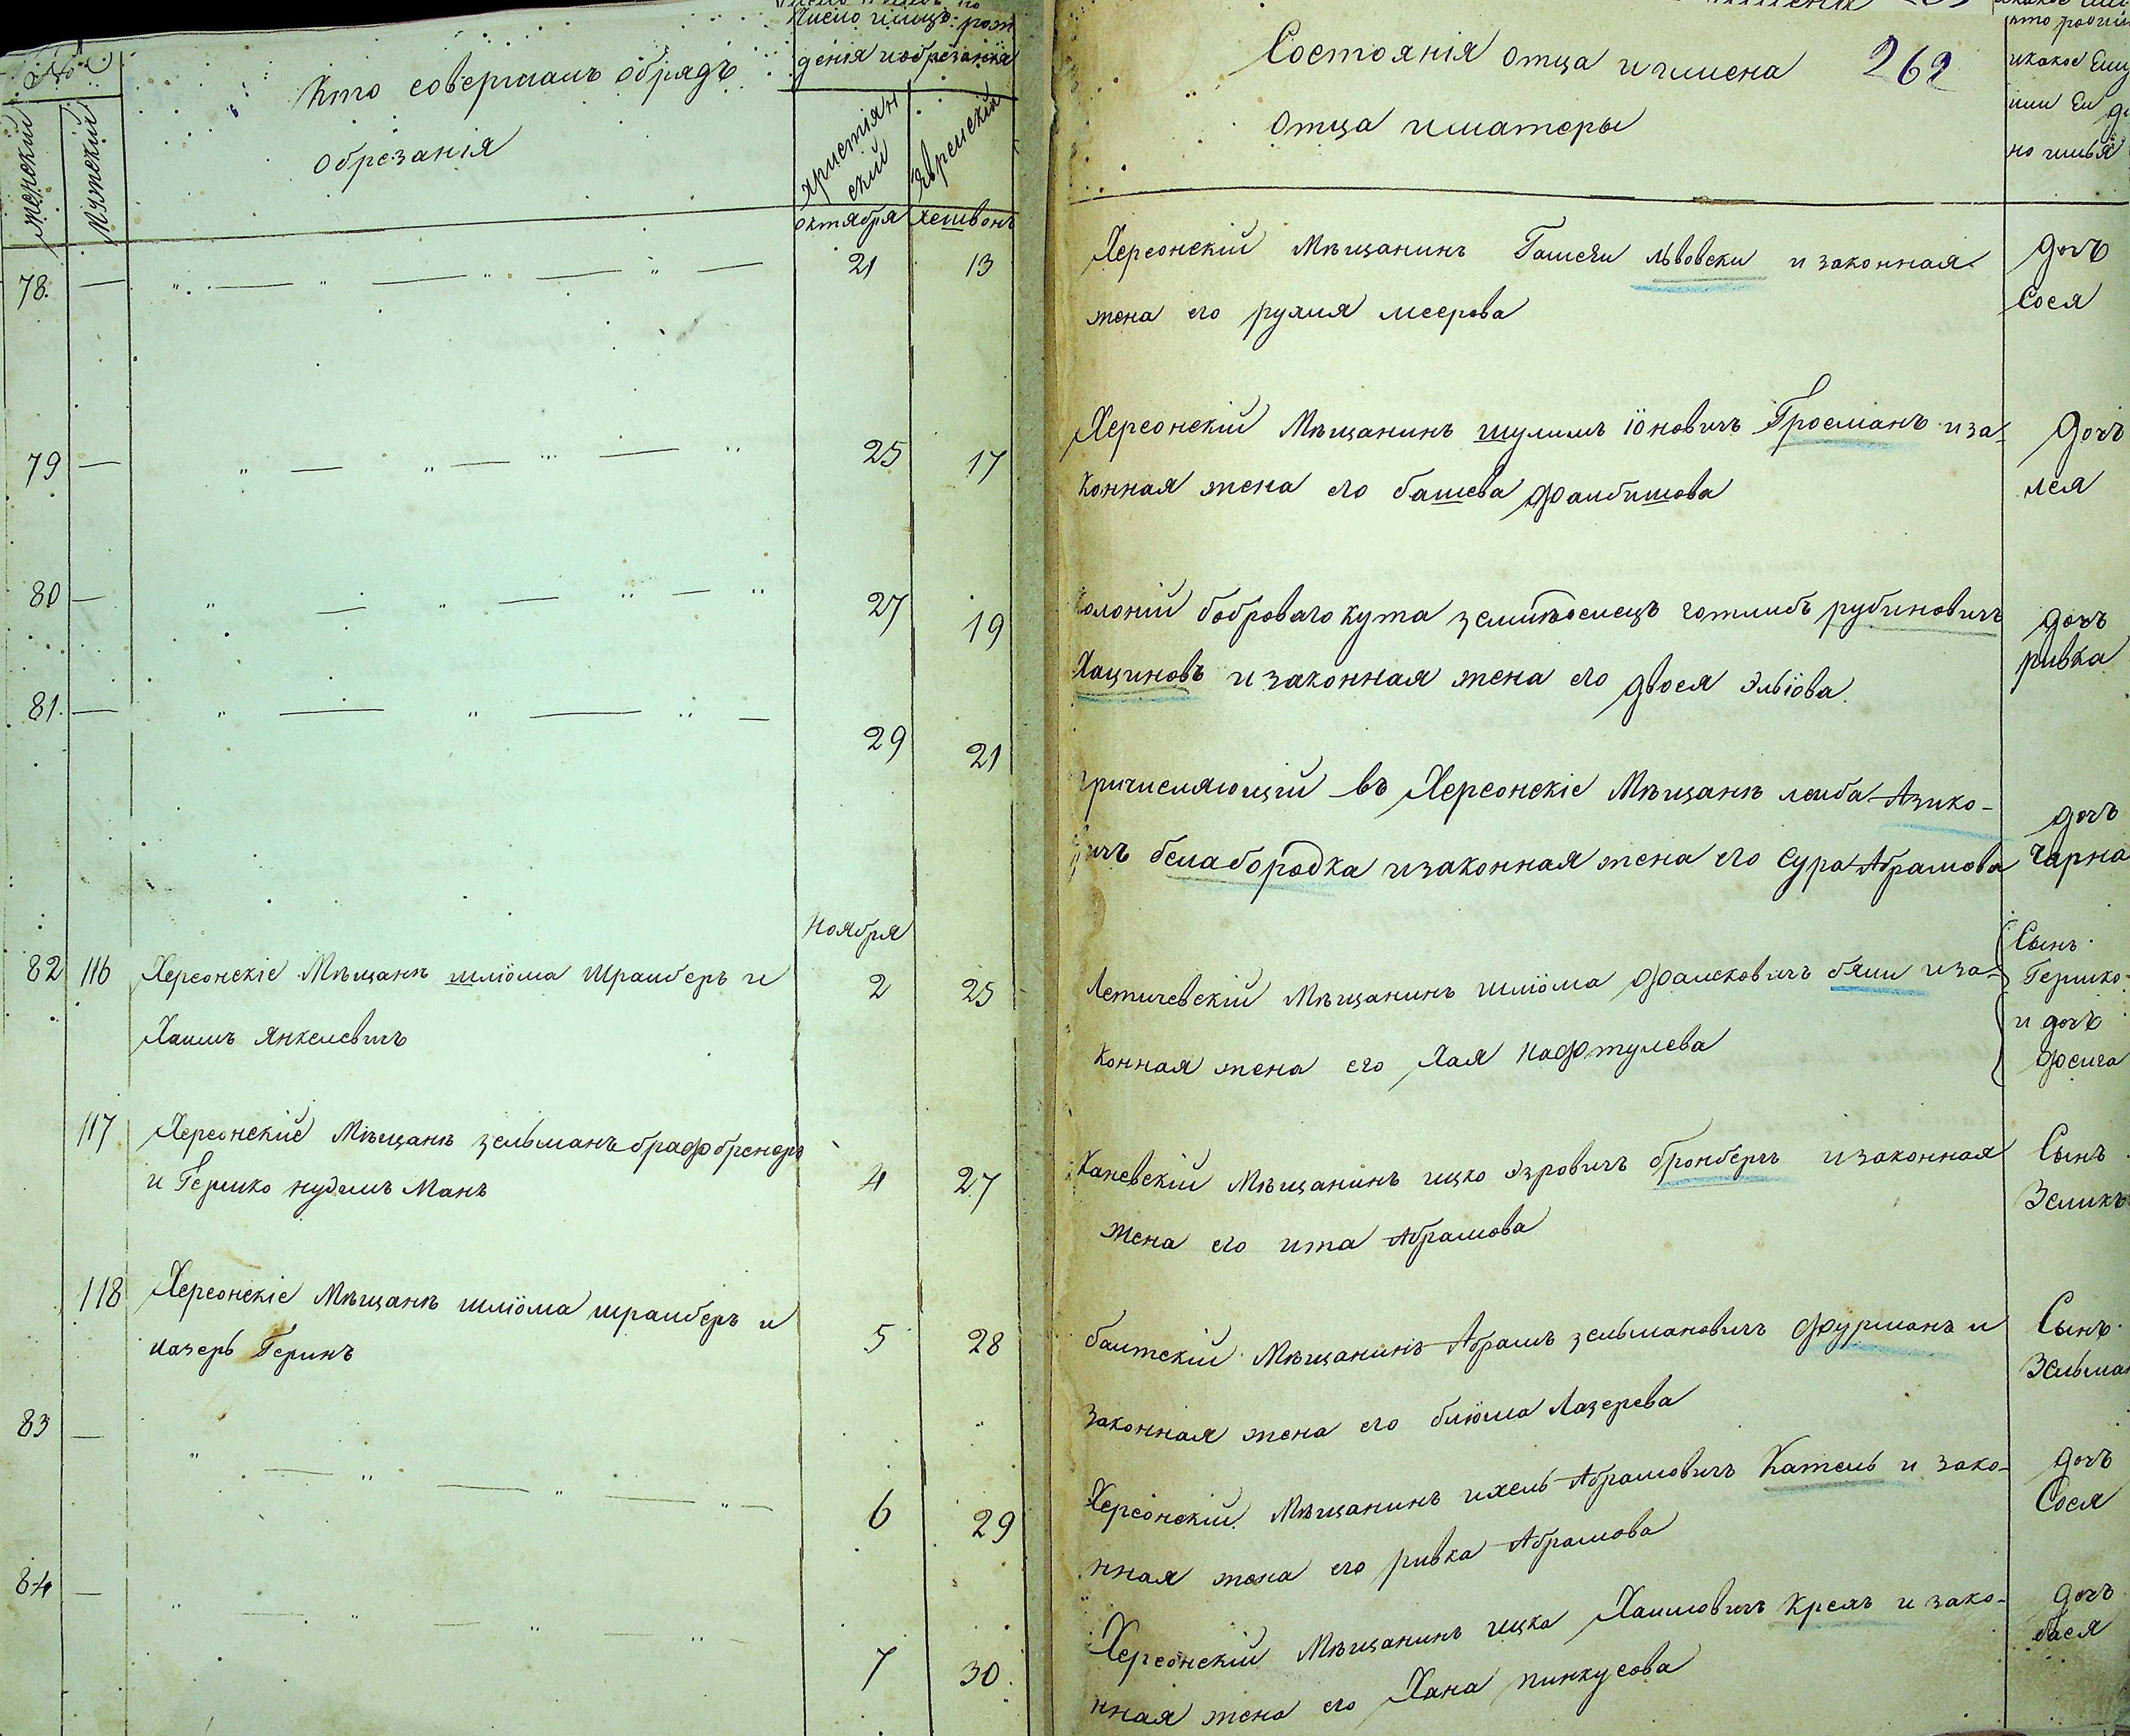 Число и мцъ рож
денія и обрезанія
№
женскій
мужескій
Кто совершалъ обрядъ
обрезанія
христіан
скій
Еврейскій
октября
хешвонъ
Состоянія отца и имена 262
отца и матеры
кто родил
и какое Ему
или Ей д
но имья
78. — 21 13
Херсонскій Мѣщанинъ Гамсеи львовски и законная
жена его рухля меерова
дочь
Сося
79 — 25 17
Херсонскій Мѣщанинъ шулимъ іоновичъ Гросманъ и за-
конная жена его башева фаибишова
Дочь
лея
80 — 27 19
колоній бобровагокута земліѣоелецъ готлибъ рубиновичъ
Хациновъ и законная жена его двося Эльіова
дочь
ривка
81. — 29 21
причисляющій въ Херсонскіе Мѣщанѣ леиба Азико-
вичъ белабородка и законная жена его Сура Абрамова
дочь
Чарна
Ноября
82 116 Херсонскіе Мѣщанѣ шліома Шраиберъ и 2 25
Хаимъ Янкелевичъ
Летичевскій Мѣщанинъ шліома фалековичъ бяли и за-
конная жена его Хая Нафтулева
Сынъ
Гершко
и дочь
феига
117 Херсонскіе Мѣщанѣ зельманъ брафбренеръ 4 27
и Гершко нудель Манъ
Каневскій Мѣщанинъ ицко Эзровичъ бронбергъ и законная
жена его ита Абрамова
Сынъ
Зеликъ
118 Херсонскіе Мѣщанѣ шліома шраиберъ и 5 28
лазерь Геринъ
балтскій Мѣщанинъ Абрамъ зельмановичъ фурманъ и
законная жена его блюма Лазерева
Сынъ
Зельман
83 — 6 29
Херсонскій Мѣщанинъ ихель Абрамовичъ Катель и зако-
нная жена его ривка Абрамова
дочь
Сося
84 — 7 30
Херсонскій Мѣщанинъ ицка Хаимовичъ Крель и зако-
нная жена его Хана пинкусова
дочь
бася